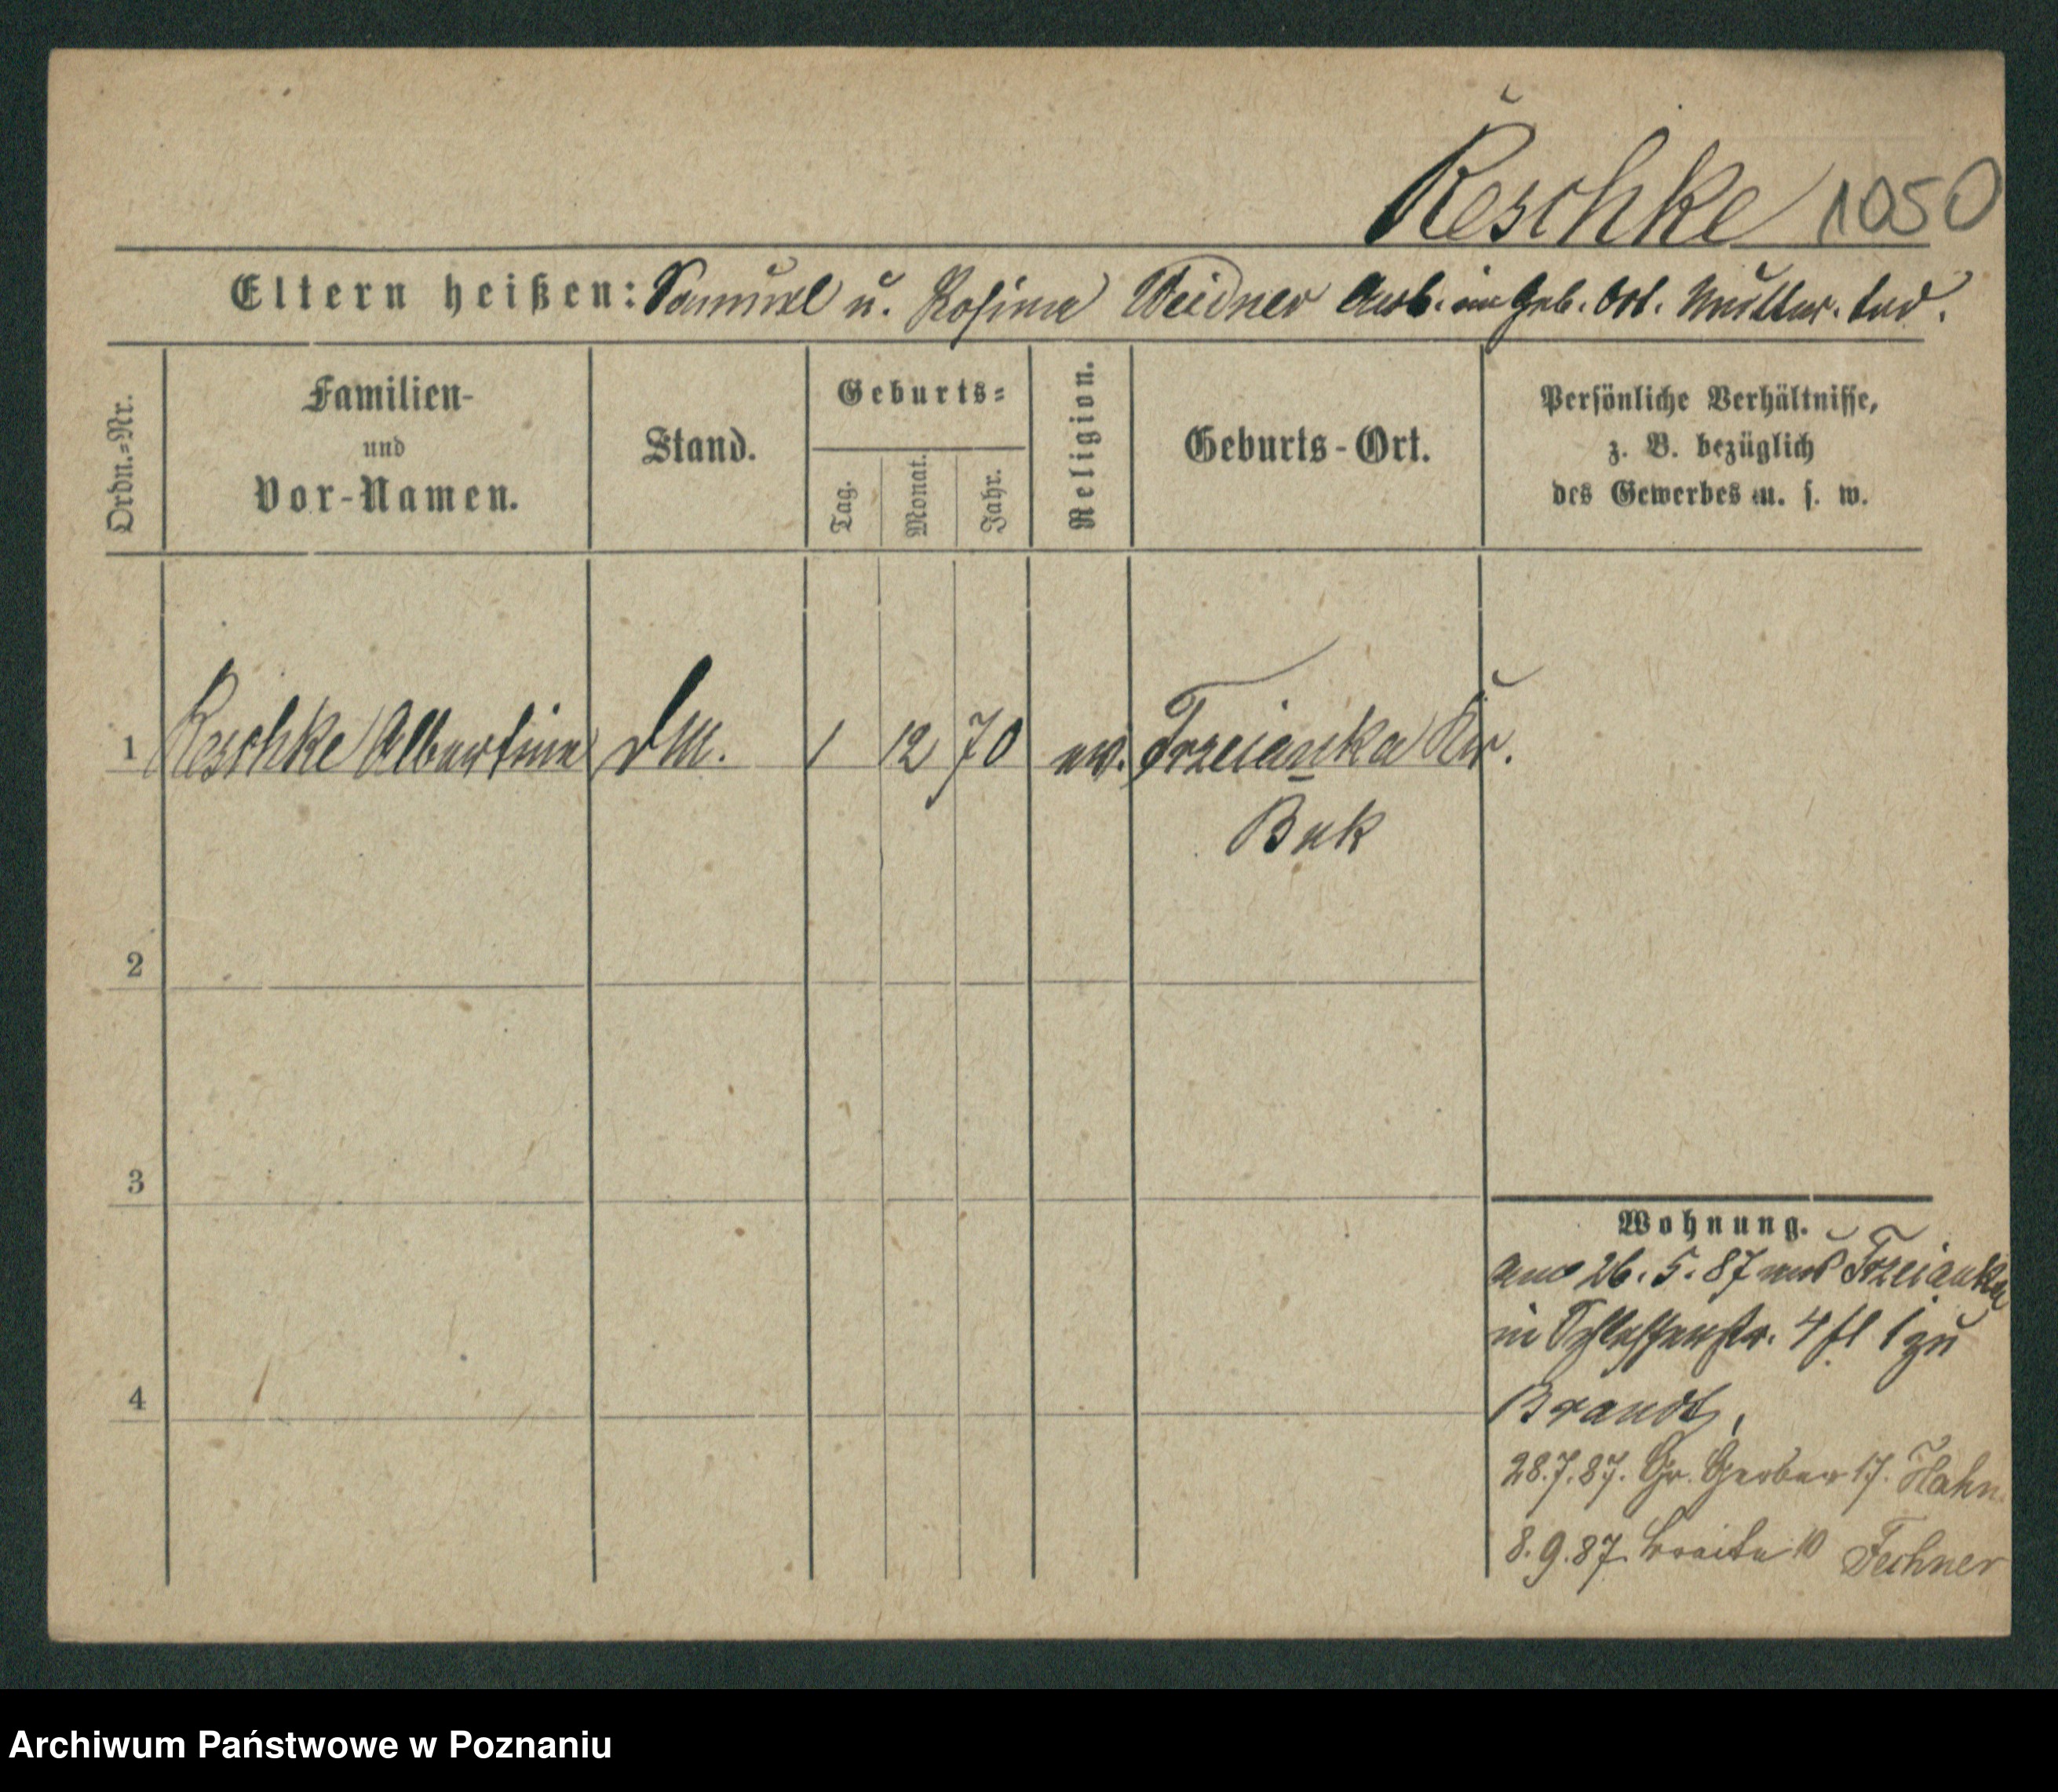 Reschke 1050
Eltern heißen: Samuel u. Rosina Weidner Arb. im Geb. Ort. Mutter. tod.
Ordn.=Nr.
Familien-
und
Vor-Namen.
Stand.
Geburts=
Tag.
Monat.
Jahr.
Religion.
Geburts-Ort.
Persönliche Verhältnisse,
z. B. bezüglich
des Gewerbes u. s. w.
1 Reschke Albertine Dm. 1 12 70 ev. Trzcianka Kr.
Buk
2
3
4
Wohnung.
am 26. 5. 87 aus Trzcianka
in 4 1 zu
Brandt,
28.7.87. Gr. Gerber 17. Hahn
8.9.87. Breite 10 Fechner
Archiwum Państwowe w Poznaniu